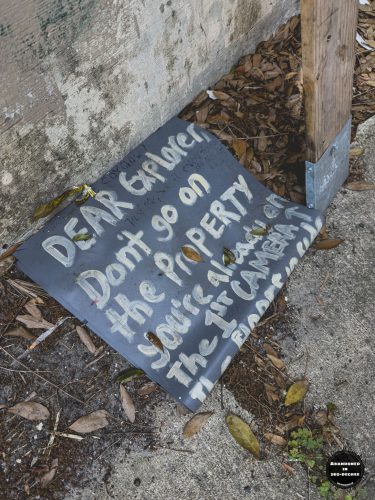 DEAR Explorer
Don't go on
the PROPERTY
you're already on
The 1st CAMERA ↑
ABANDONED
IN
360-DECAES